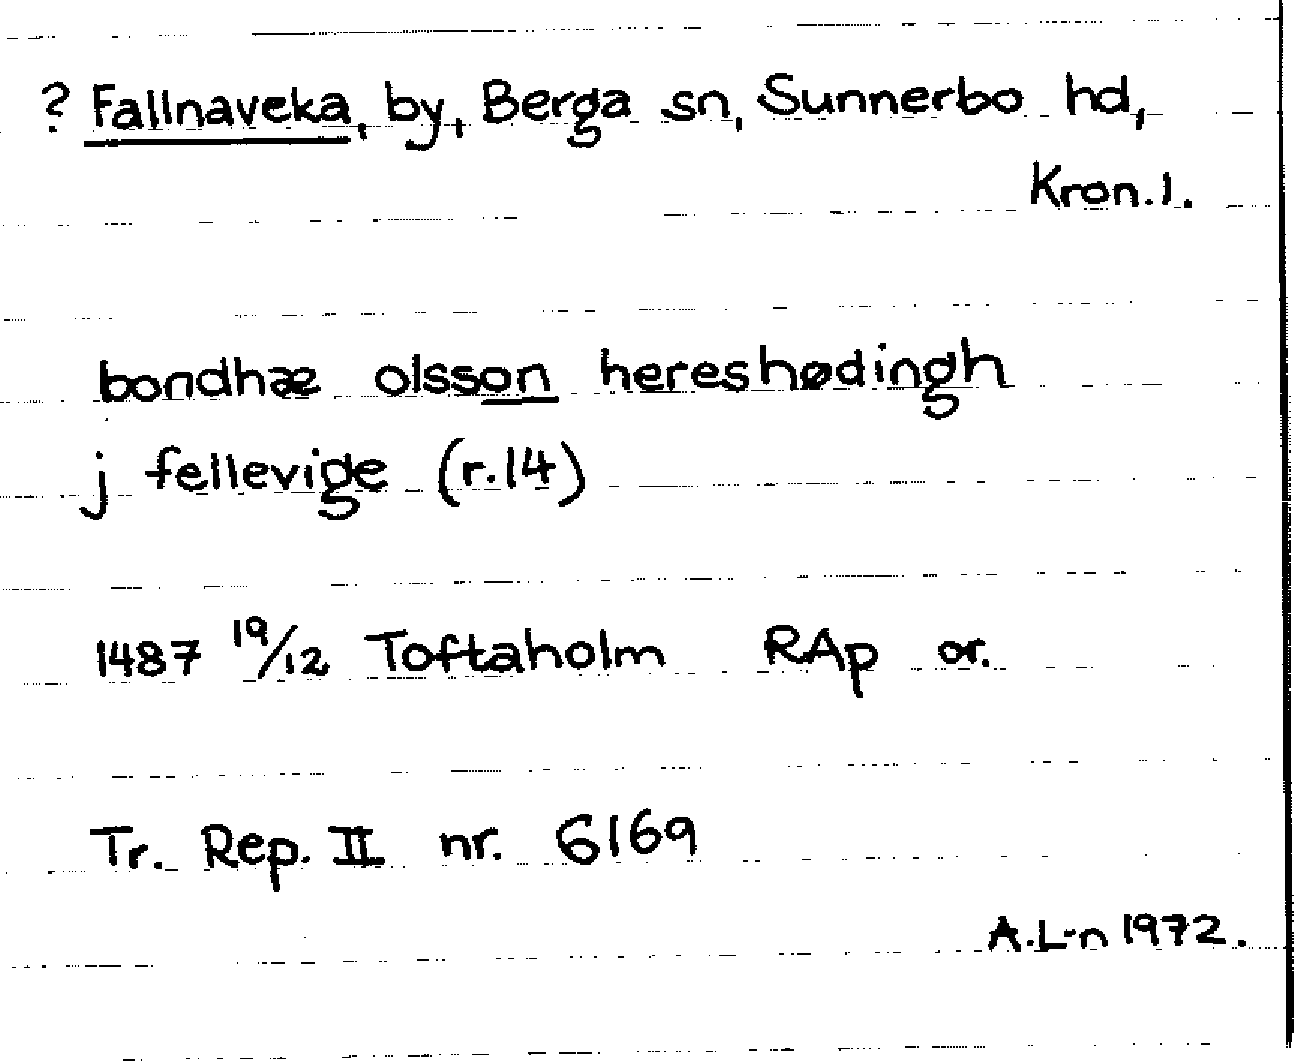 ? Fallnaveka, by, Berga sn, Sunnerbo hd,
Kron.l.
bondhæ olsson hereshødingh
j fellevige (r.14)
1487 19/12 Toftaholm RAp or.
Tr. Rep. II nr. 6169
A.L-n 1972.